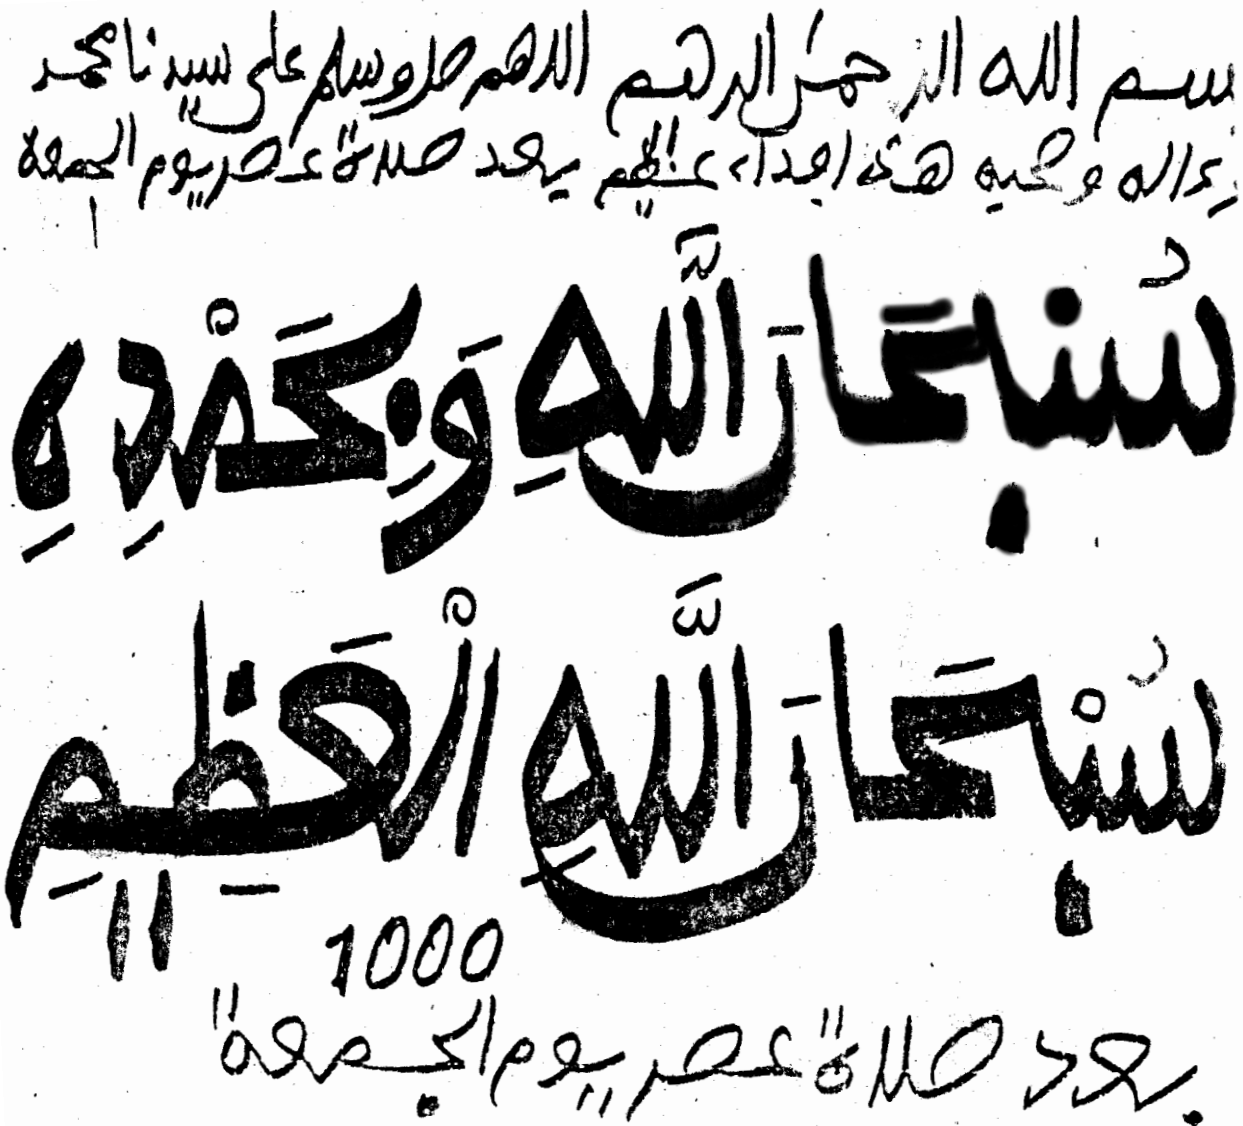 بسم الله الرحمن الرحيم اللهم صل وسلم على سيدنا محمد
وءاله وصحبه هذه اجداء عظيم بعد صلاة عصر يوم الجمعة
سُبْحَانَ اللَّهِ وَبِحَمْدِهِ
سُبْحَانَ اللَّهِ الْعَظِيمِ
1000
بعد صلاة عصر يوم الجمعة